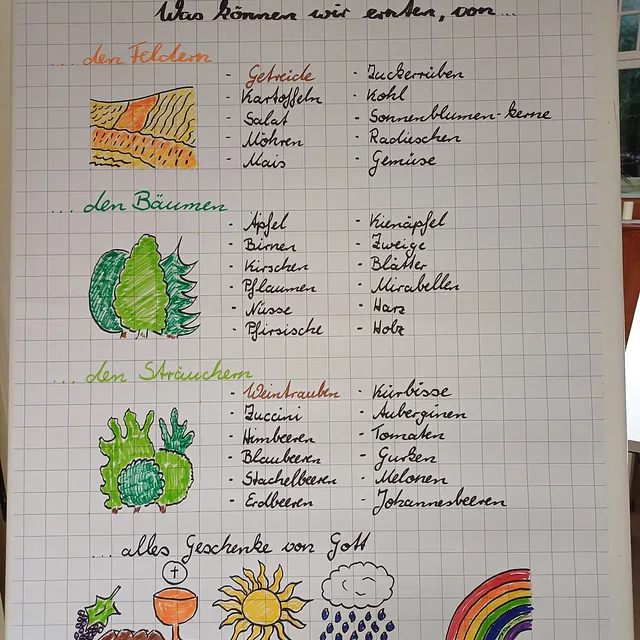 Was können wir ernten, von...
... den Feldern
- Getreide
- Kartoffeln
- Salat
- Möhren
- Mais
- Zuckerrüben
- Kohl
- Sonnenblumen-kerne
- Radieschen
- Gemüse
... den Bäumen
- Äpfel
- Birnen
- Kirschen
- Pflaumen
- Nüsse
- Pfirsische
- Kienäpfel
- Zweige
- Blätter
- Mirabellen
- Harz
- Holz
... den Sträuchern
- Weintrauben
- Zuccini
- Himbeeren
- Blaubeeren
- Stachelbeeren
- Erdbeeren
- Kürbisse
- Auberginen
- Tomaten
- Gurken
- Melonen
- Johannesbeeren
... alles Geschenke von Gott